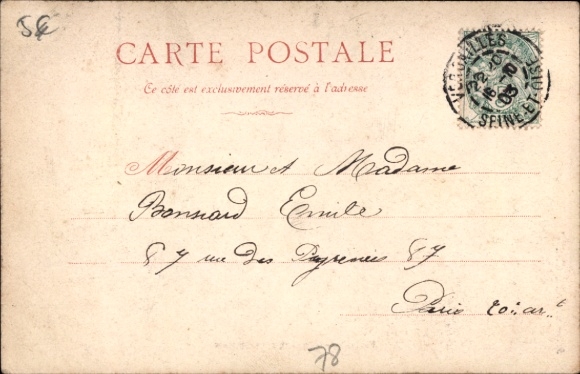 5€
CARTE POSTALE
Ce côté est exclusivement réservé à l'adresse
VERSAILLES
SEINE ET OISE
03
Monsieur et Madame
Bonnard Emile
87 rue des Pyrenées 87
Paris 20: ar.t
78